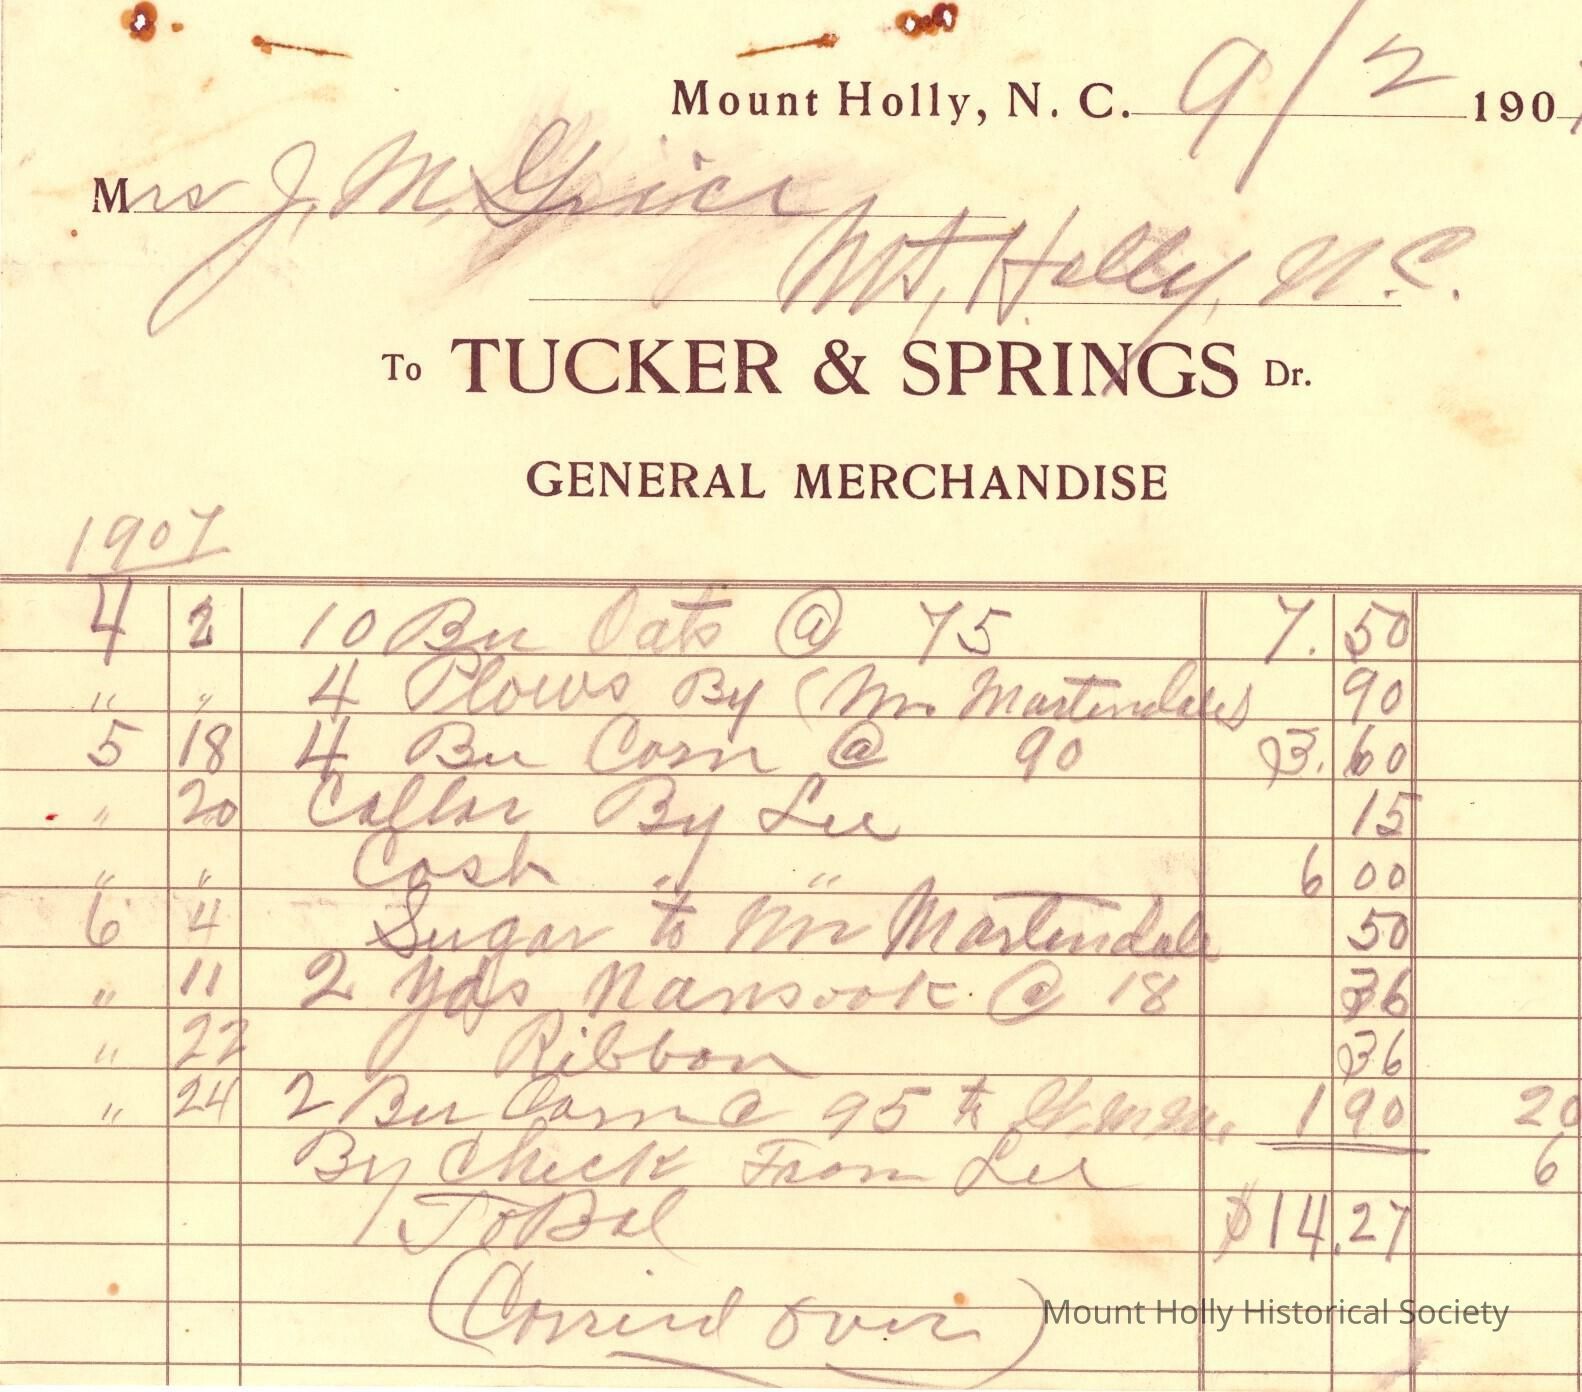 Mount Holly, N. C. 9/2 1907
Mrs J. M. Grice
Mt, Holly, N.C.
To TUCKER & SPRINGS Dr.
GENERAL MERCHANDISE
1907
4 2 10 Bu Oats @ 75 7. 50
" " 4 Plows By (Mr. Martindale) 90
5 18 4 Bu Corn @ 90 3. 60
" 20 Collar By Lee 15
" " Cash " " 6 00
6 4 Sugar to Mr Martindale 50
" 11 2 Yds Nansook @ 18 36
" 22 Ribbon 36
" 24 2 Bu Corn @ 95 to 1 90 20
By Check From Lee 6
To Bal $14.27
(Carried over)
Mount Holly Historical Society